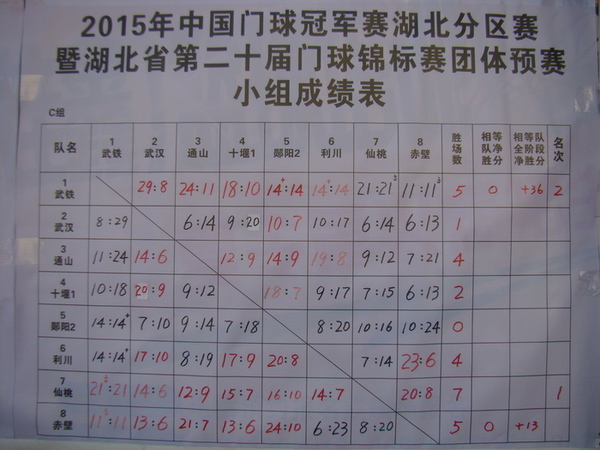 2015年中国门球冠军赛湖北分区赛
暨湖北省第二十届门球锦标赛团体预赛
小组成绩表
C组
队名 1武铁 2武汉 3通山 4十堰1 5郧阳2 6利川 7仙桃 8赤壁 胜场数 相等队净胜分 相等队全阶段净胜分 名次
1武铁 29:8 24:11 18:10 14⁺:14 14⁺:14 21:21 11:11 5 0 +36 2
2武汉 8:29 6:14 9:20 10:7 10:17 6:14 6:13 1
3通山 11:24 14:6 12:9 14:9 19:8 9:12 7:21 4
4十堰1 10:18 20:9 9:12 18:7 9:17 7:15 6:13 2
5郧阳2 14:14⁺ 7:10 9:14 7:18 8:20 10:16 10:24 0
6利川 14:14⁺ 17:10 8:19 17:9 20:8 7:14 23:6 4
7仙桃 21:21 14:6 12:9 15:7 16:10 14:7 20:8 7 1
8赤壁 11:11 13:6 21:7 13:6 24:10 6:23 8:20 5 0 +13